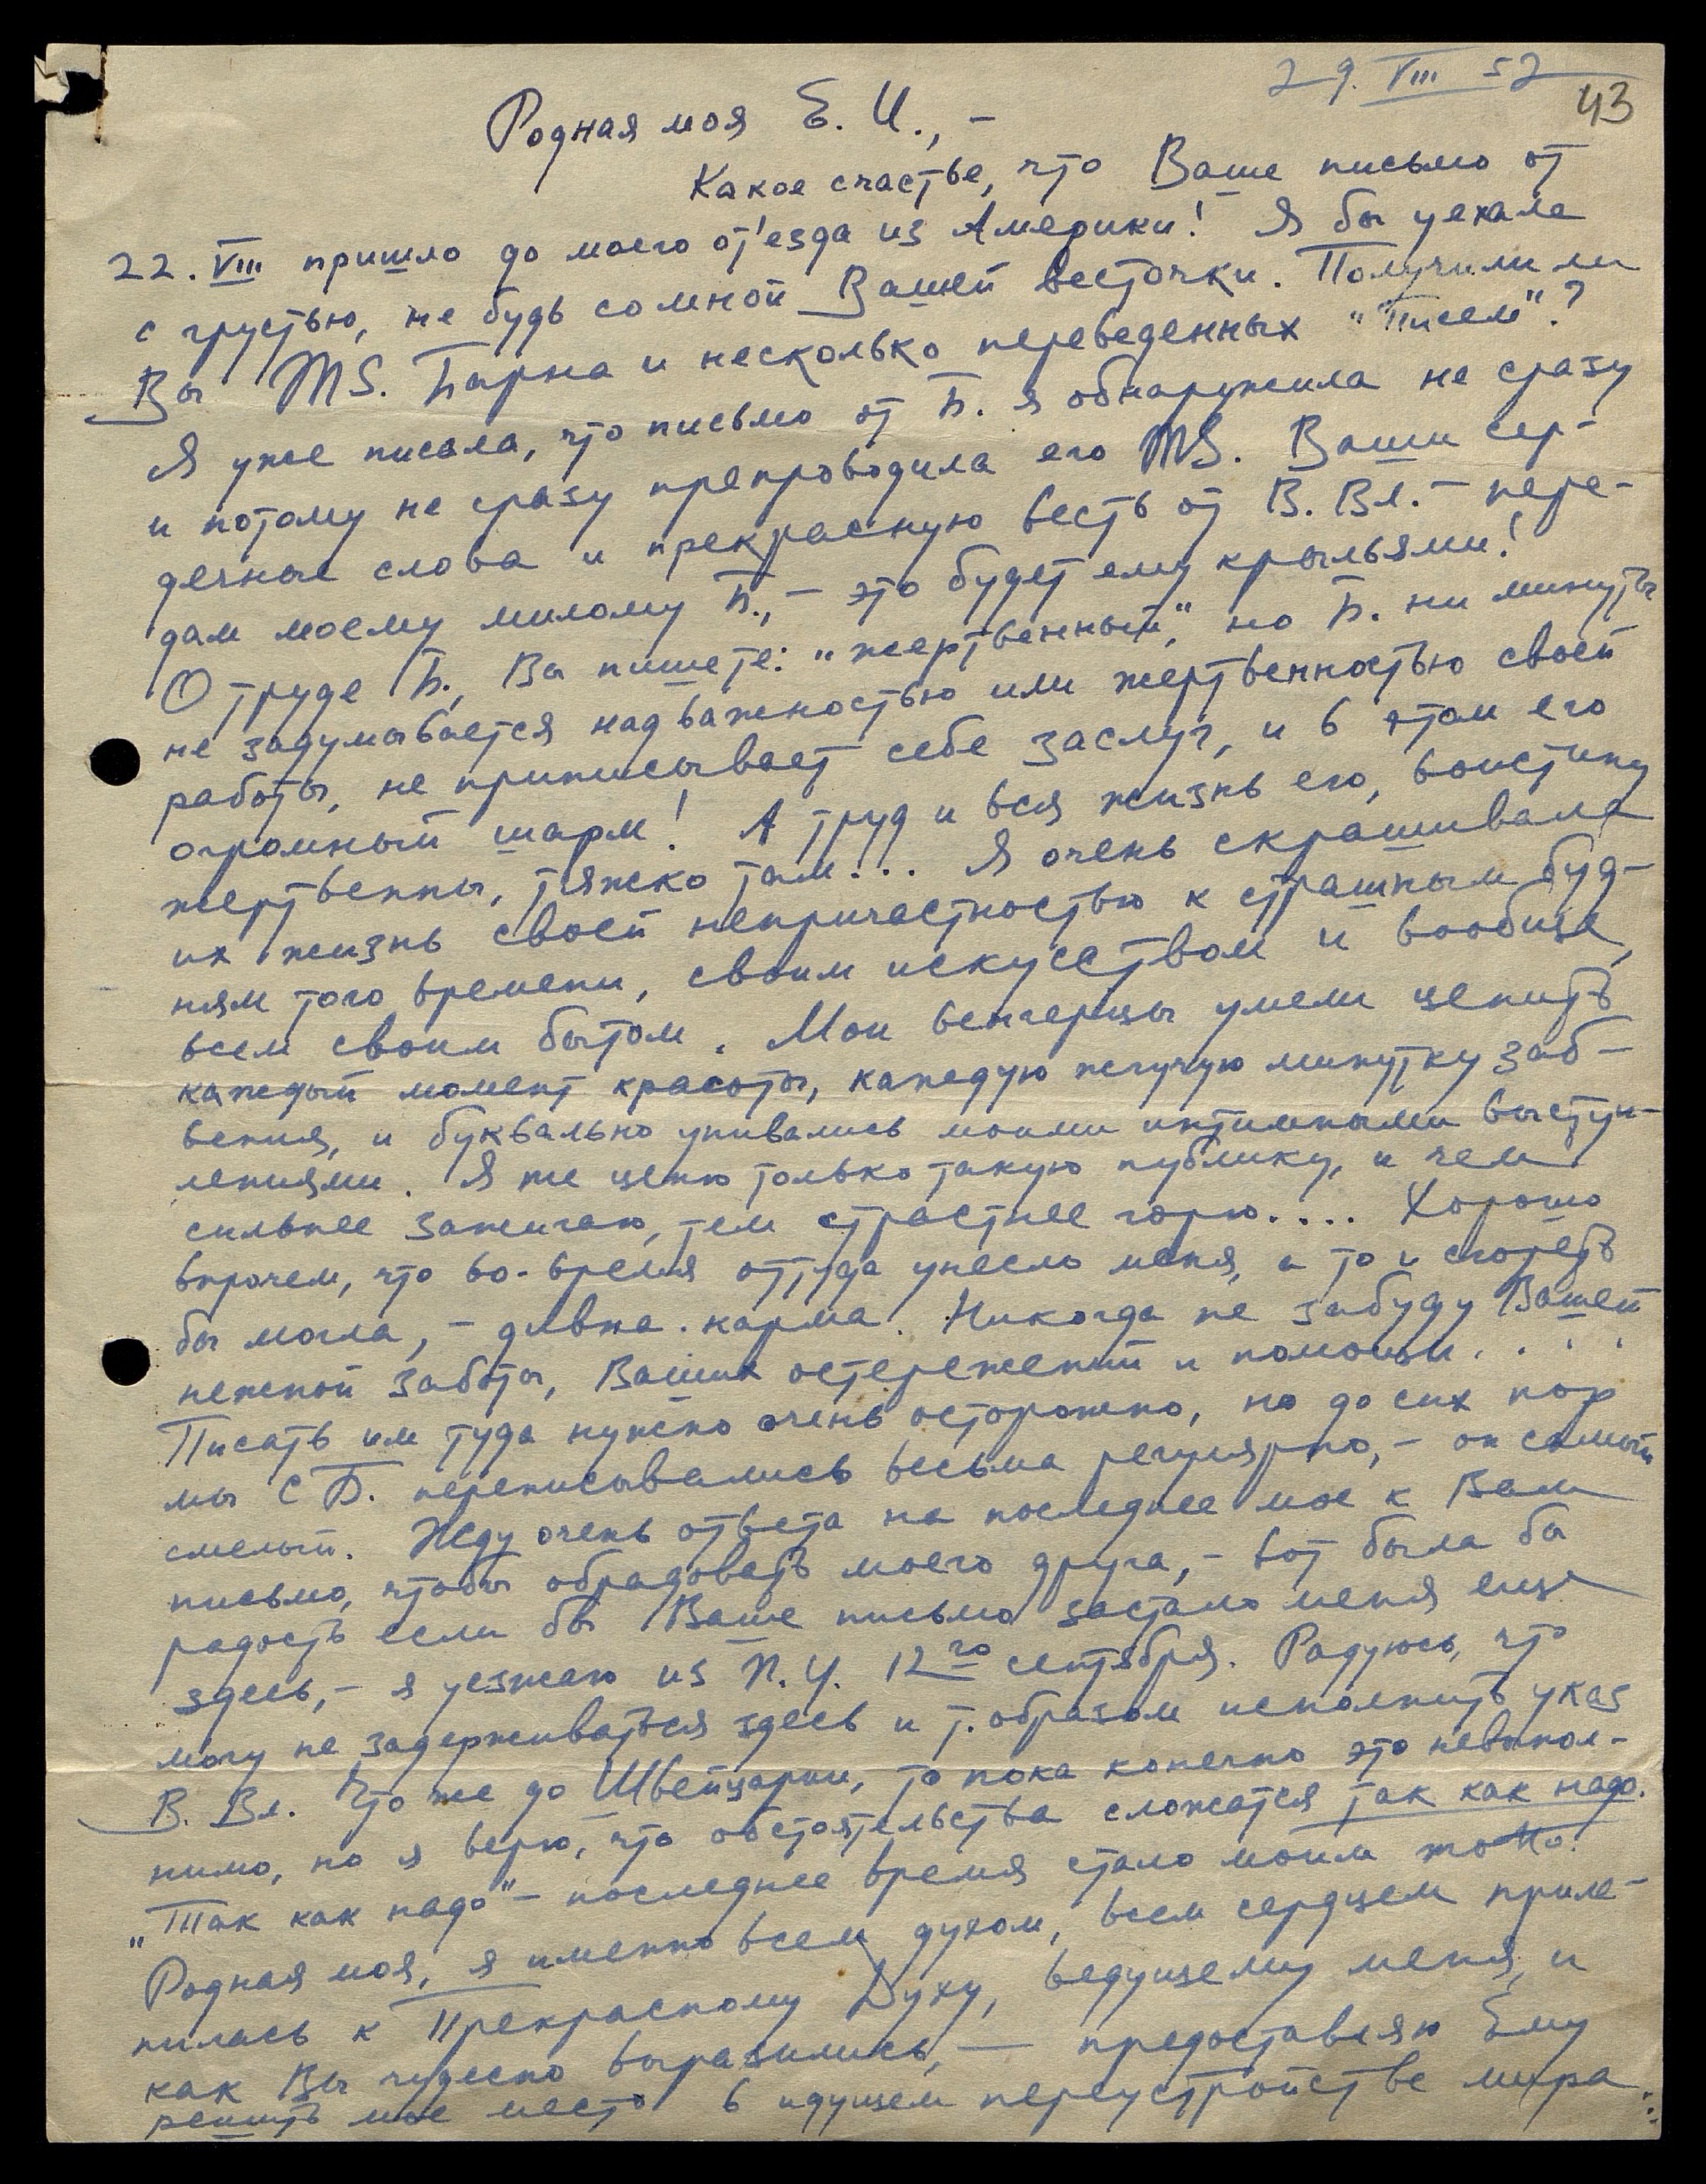 29. VIII 52
43
Родная моя Е. И., –
Какое счастье, что Ваше письмо от
22. VIII пришло до моего от'езда из Америки! Я бы уехала
с грустью, не будь со мной Вашей весточки. Получили ли
Вы MS. Барна и несколько переведенных "Писем"?
Я уже писала, что письмо от Б. я обнаружила не сразу
и потому не сразу препроводила его MS. Ваши сер-
дечные слова и прекрасную весть от В. Вл. – пере-
дам моему милому Б., – это будет ему крыльями!
О труде Б., Вы пишете: "жертвенный", но Б. ни минуты
не задумывается над важностью или жертвенностью своей
работы, не приписывает себе заслуг, и в этом его
огромный шарм! А труд и вся жизнь его, воистину
жертвенны, тяжко там... Я очень скрашивала
их жизнь своей непричастностью к страшным буд-
ням того времени, своим искусством и вообще,
всем своим бытом. Мои венгерцы умели ценить
каждый момент красоты, каждую жгучую минутку заб-
вения, и буквально упивались моими интимными выступ-
лениями. Я же ценю только такую публику, и чем
сильнее зажигаю, тем страстнее горю.... Хорошо
впрочем, что во-время оттуда унесло меня, а то и сгореть
бы могла, – дивна карма. Никогда не забуду Вашей
нежной заботы, Ваших остережений и помощи. . . .
Писать им туда нужно очень осторожно, но до сих пор
мы с Б. переписывались весьма регулярно, – он самый
смелый. Жду очень ответа на последнее мое к Вам
письмо, чтобы обрадовать моего друга, – вот была бы
радость если бы Ваше письмо застало меня еще
здесь, – я уезжаю из Н. Й. 12го сентября. Радуюсь, что
могу не задерживаться здесь и т. образом исполнить указ
В. Вл. Что же до Швейцарии, то пока конечно это невыпол-
нимо, но я верю, что обстоятельства сложатся так как надо.
"Так как надо" – последнее время стало моим мотто.
Родная моя, я именно всем духом, всем сердцем приле-
пилась к Прекрасному Духу, ведущему меня, и
как Вы чудесно выразились, – предоставляю Ему
решить мое место в идущем переустройстве мира...